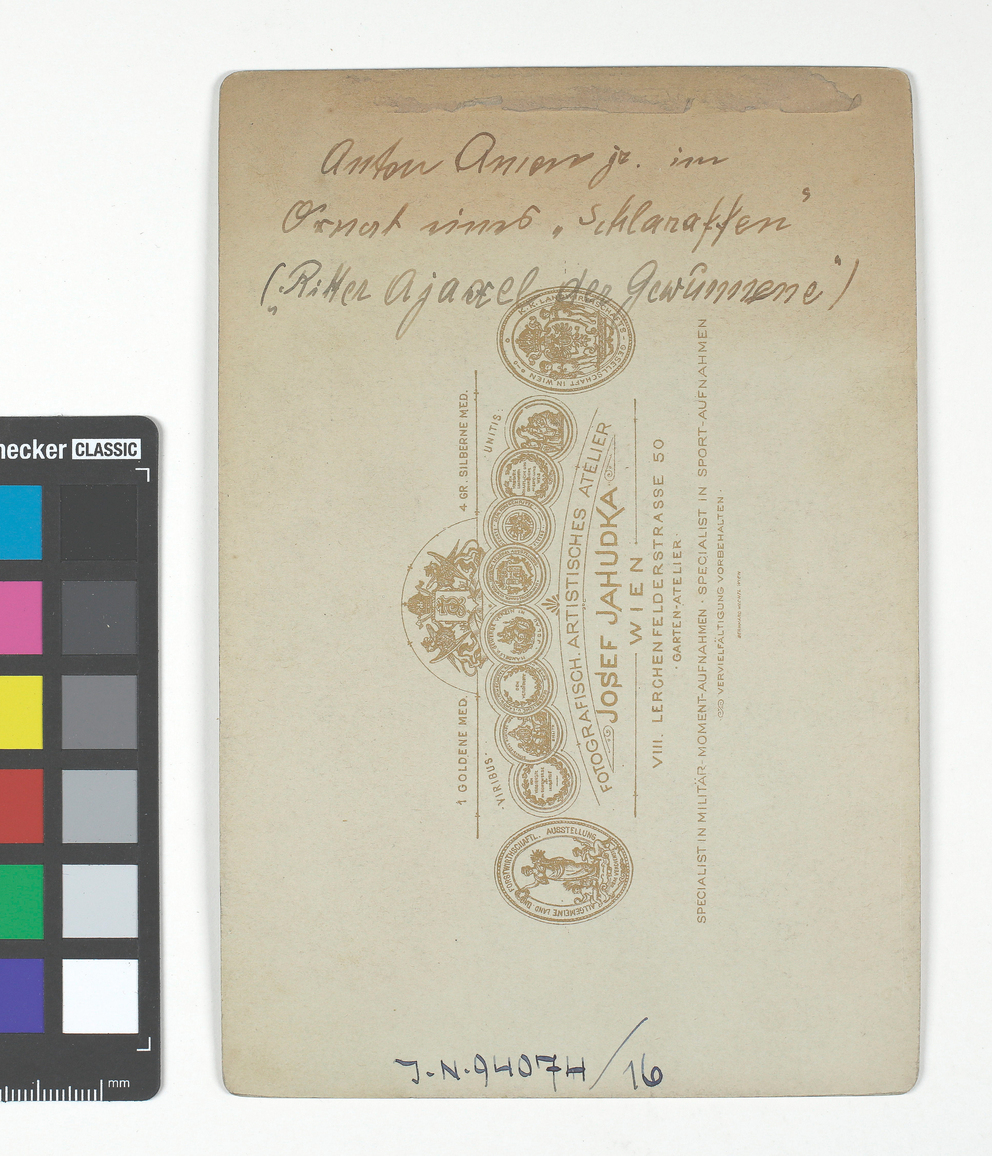 Anton Amon jr. im
Ornat eines „Schlaraffen"
(„Ritter Ajaxel der Gewünnene")
K.K. LANDWIRTSCHAFTS-GESELLSCHAFT IN WIEN
4 GR. SILBERNE MED.
1 GOLDENE MED.
VIRIBUS·
UNITIS·
FOTOGRAFISCH. ARTISTISCHES ATELIER
JOSEF JAHUDKA
WIEN
VIII. LERCHENFELDERSTRASSE 50
· GARTEN-ATELIER ·
SPECIALIST IN MILITÄR- MOMENT-AUFNAHMEN · SPECIALIST IN SPORT-AUFNAHMEN
VERVIELFÄLTIGUNG VORBEHALTEN ·
ALLGEMEINE LAND UND FORSTWIRTHSCHAFTL. AUSSTELLUNG
J.N. 94074/16
necker CLASSIC
mm